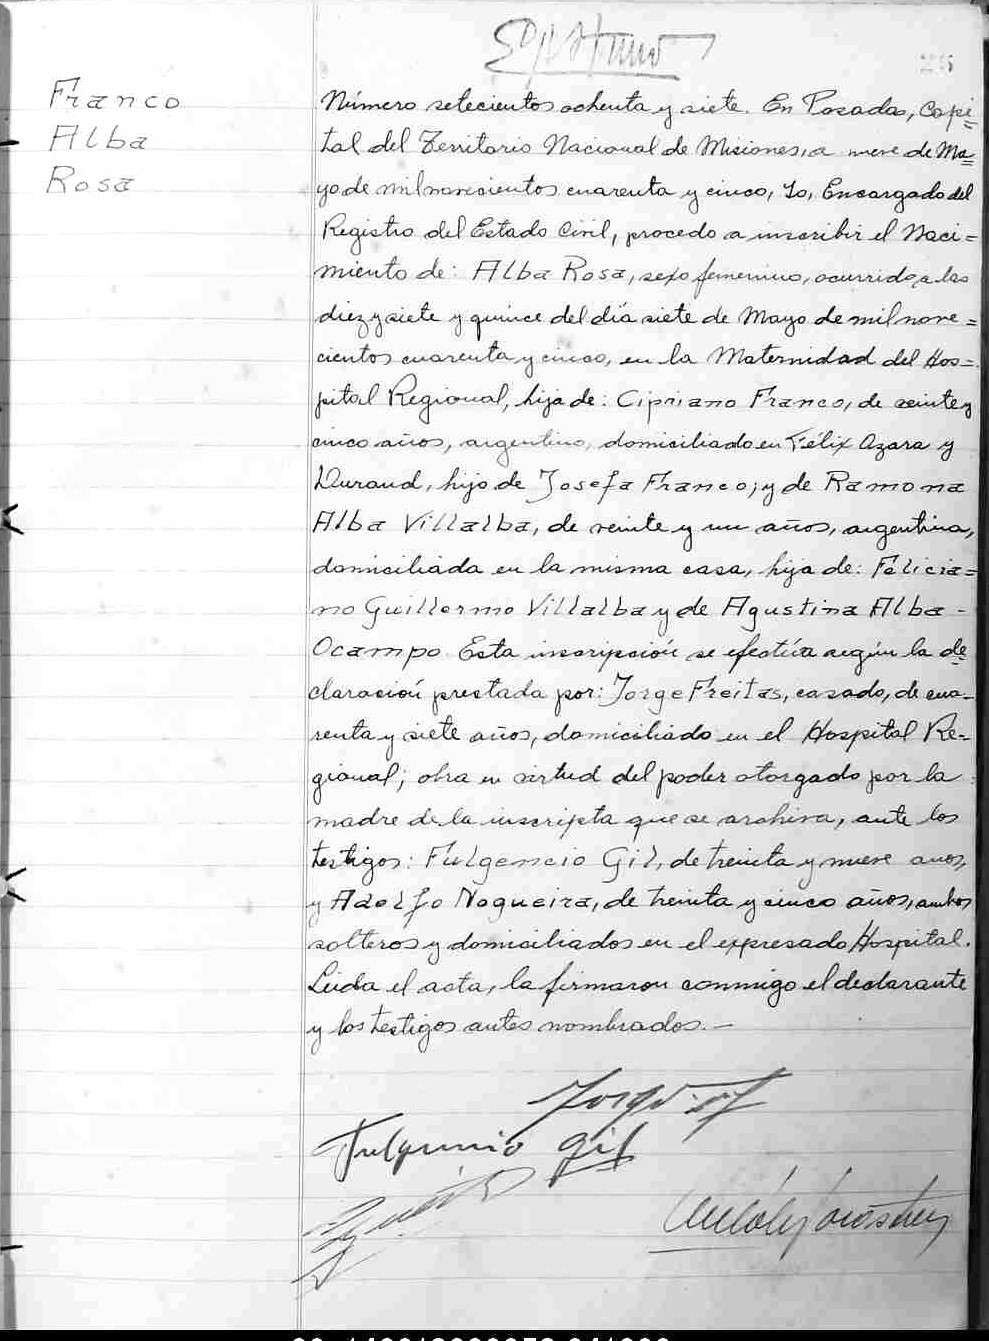 Franco
Alba
Rosa
Número setecientos ochenta y siete. En Posadas, Capi=
tal del Territorio Nacional de Misiones, a nueve de Ma=
yo de mil novecientos cuarenta y cinco, Yo, Encargado del
Registro del Estado Civil, procedo a inscribir el Naci=
miento de: Alba Rosa, sexo femenino, ocurrido a las
diez y siete y quince del día siete de Mayo de mil nove=
cientos cuarenta y cinco, en la Maternidad del Hos=
pital Regional, hija de: Cipriano Franco, de veinte y
cinco años, argentino, domiciliado en Félix Azara y
Durand, hijo de Josefa Franco; y de Ramona
Alba Villalba, de veinte y un años, argentina,
domiciliada en la misma casa, hija de: Felicia=
no Guillermo Villalba y de Agustina Alba -
Ocampo. Esta inscripción se efectúa según la de
claración prestada por: Jorge Freitas, casado, de cua-
renta y siete años, domiciliado en el Hospital Re-
gional; obra en virtud del poder otorgado por la
madre de la inscripta que se archiva, ante los
testigos: Fulgencio Gil, de treinta y nueve anos,
y Adolfo Nogueira, de treinta y cinco años, ambos
solteros y domiciliados en el expresado Hospital.
Leida el acta, la firmaron conmigo el declarante
y los testigos antes nombrados. -
Fulgencio Gil